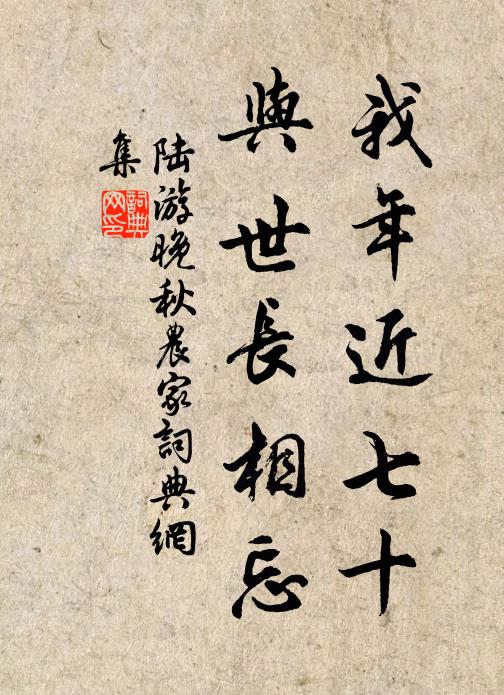 我年近七十
與世長相忘
陆游晚秋農家詞典網
集
詞典网印